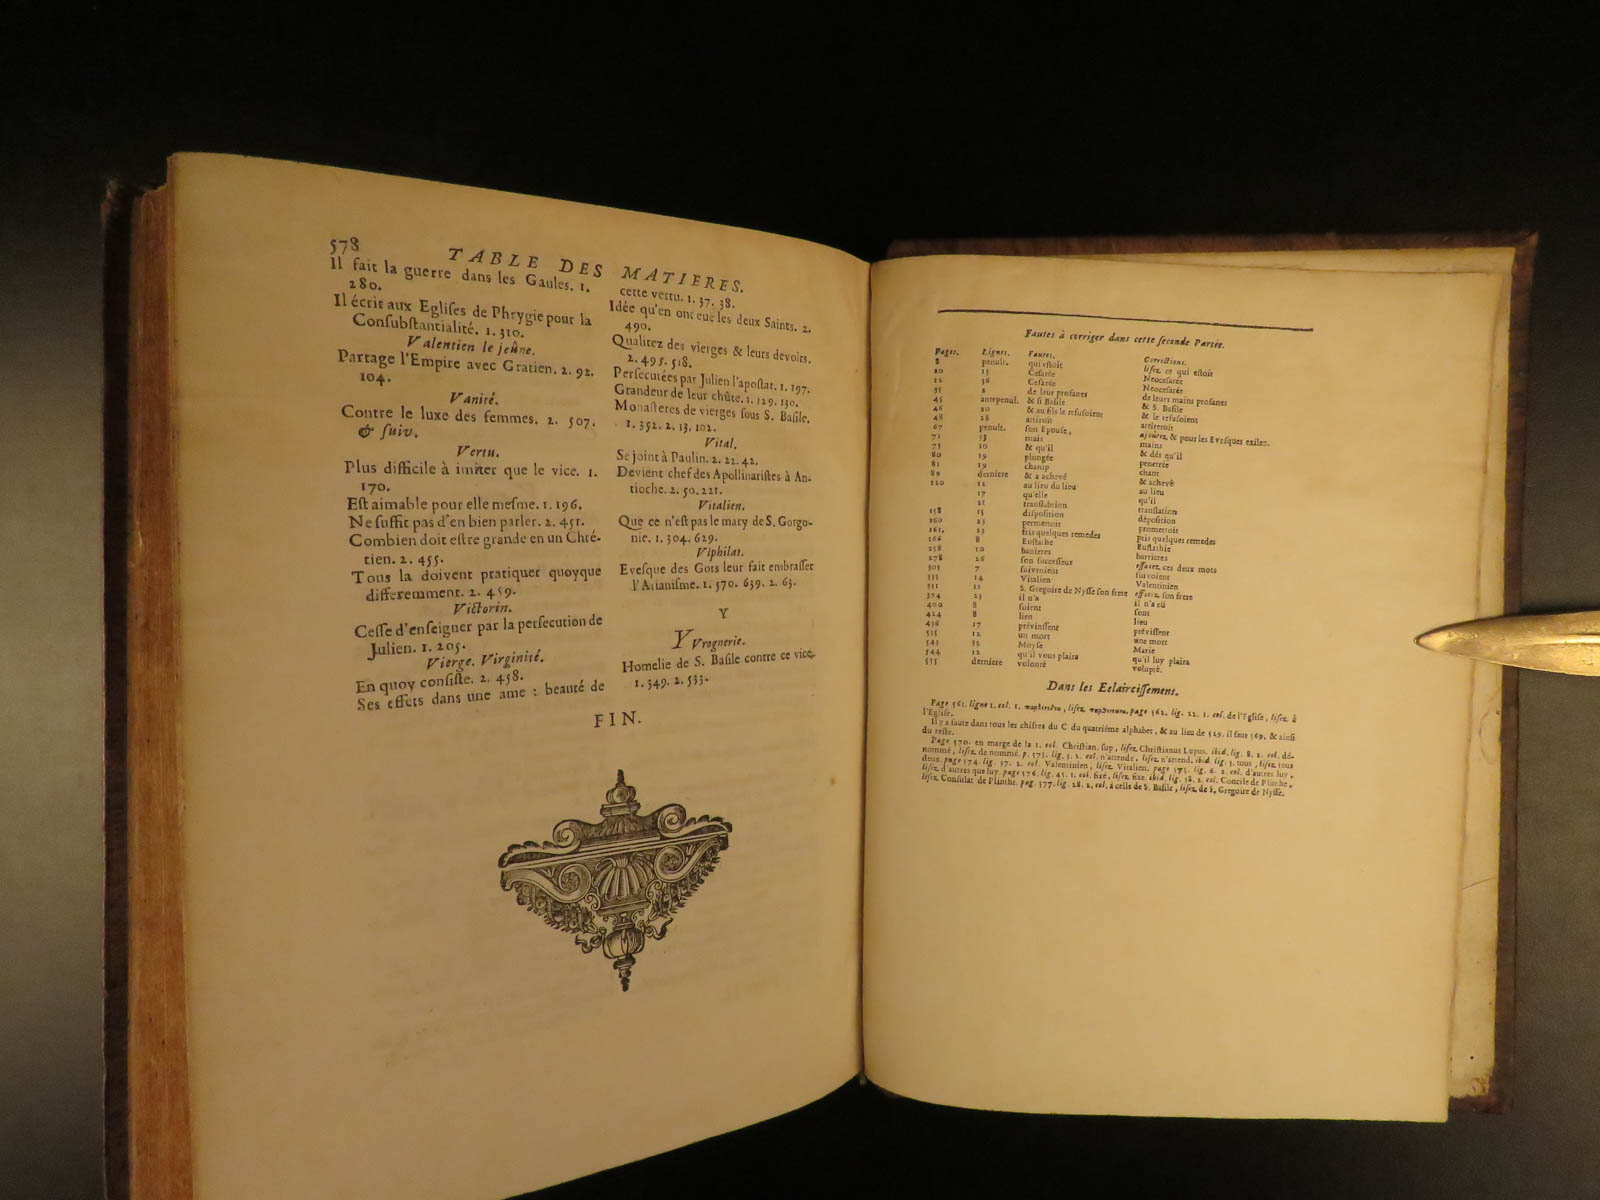 578 TABLE DES MATIERES.
Il fait la guerre dans les Gaules. 1.
280.
Il écrit aux Eglises de Phrygie pour la
Consubstantialité. 1. 310.
Valentien le jeûne.
Partage l'Empire avec Gratien. 2. 92.
104.
Vanité.
Contre le luxe des femmes. 2. 507.
& suiv.
Vertu.
Plus difficile à imiter que le vice. 1.
170.
Est aimable pour elle mesme. 1. 196.
Ne suffit pas d'en bien parler. 2. 451.
Combien doit estre grande en un Chré-
tien. 2. 455.
Tous la doivent pratiquer quoyque
differemment. 2. 459.
Victorin.
Cesse d'enseigner par la persecution de
Julien. 1. 205.
Vierge. Virginité.
En quoy consiste. 2. 458.
Ses effets dans une ame : beauté de
cette vertu. 1. 37. 38.
Idée qu'en ont eue les deux Saints. 2.
490.
Qualitez des vierges & leurs devoirs.
2. 495. 518.
Persecutées par Julien l'apostat. 1. 197.
Grandeur de leur chûte. 1. 129. 130.
Monasteres de vierges sous S. Basile.
1. 352. 2. 13. 102.
Vital.
Se joint à Paulin. 2. 22. 42.
Devient chef des Apollinaristes à An-
tioche. 2. 50. 221.
Vitalien.
Que ce n'est pas le mary de S. Gorgo-
nie. 1. 304. 629.
Vlphilas.
Evesque des Gots leur fait embrasser
l'Arianisme. 1. 570. 639. 2. 63.
Y
Yvrognerie.
Homelie de S. Basile contre ce vice.
1. 349. 2. 533.
FIN.
Fautes à corriger dans cette seconde Partie.
Pages. Lignes. Fautes. Corrections.
8 penult. qui estoit lisez ce qui estoit
10 15 Cesarée Neocesarée
12 36 Cesarée Neocesarée
35 2 de leur profanes de leurs mains profanes
45 antepenul. & si Basile & S. Basile
46 20 & au fils le refusoient & le refusoient
48 28 attiroit attireroit
67 penult. son Epouse, ajoutez & pour les Evesques exilez.
71 33 mais mains
73 10 & qu'il & dés qu'il
80 19 plongée penetrée
81 19 champ chant
89 derniere & a achevé & achevé
120 12 au lieu du lieu au lieu
17 qu'elle qu'il
21 translation
158 15 disposition déposition
160 23 permettoit promettoit
161. 23 fris quelques remedes pris quelques remedes
166 8 Eustathe Eustathie
258 10 banieres barrieres
278 26 son successeur effacez ces deux mots
303 7 suivroient suivoient
333 14 Vitalien Valentinien
351 11 S. Gregoire de Nysse son frere effacez son frere
394 23 il n'a il n'a eû
400 8 soient sont
424 8 lien lieu
436 17 prévinssent prévissent
535 12 un mort une mort
543 32 Moyse Marie
544 12 qu'il vous plaira qu'il luy plaira
555 derniere volonté volupté.
Dans les Eclaircissemens.
Page 561. ligne 1. col. 1. lisez page 562. lig. 22. 1. col. de l'Eglise, lisez à
l'Eglise.
Il y a faute dans tous les chifres du C du quatriéme alphabet, & au lieu de 529. il faut 569. & ainsi
du reste.
Page 570. en marge de la 1. col. Christian. sup, lisez Christianus Lupus. ibid. lig. 8. 2. col. dé-
nommé, lisez de nommé. p. 573. lig. 3. 2. col. n'attende, lisez n'attend. ibid. lig. 3. tous, lisez tous
deux. page 574. lig. 37. 2. col. Valentinien, lisez Vitalien. page 575. lig. 6. 2. col. d'autres luy,
lisez d'autres que luy. page 576. lig. 45. 1. col. fixé, lisez fixe. ibid. lig. 58. 2. col. Concile de Plinthe,
lisez Consulat de Plinthe. pag. 577. lig. 28. 2. col. à celle de S. Basile, lisez de S. Gregoire de Nysse.